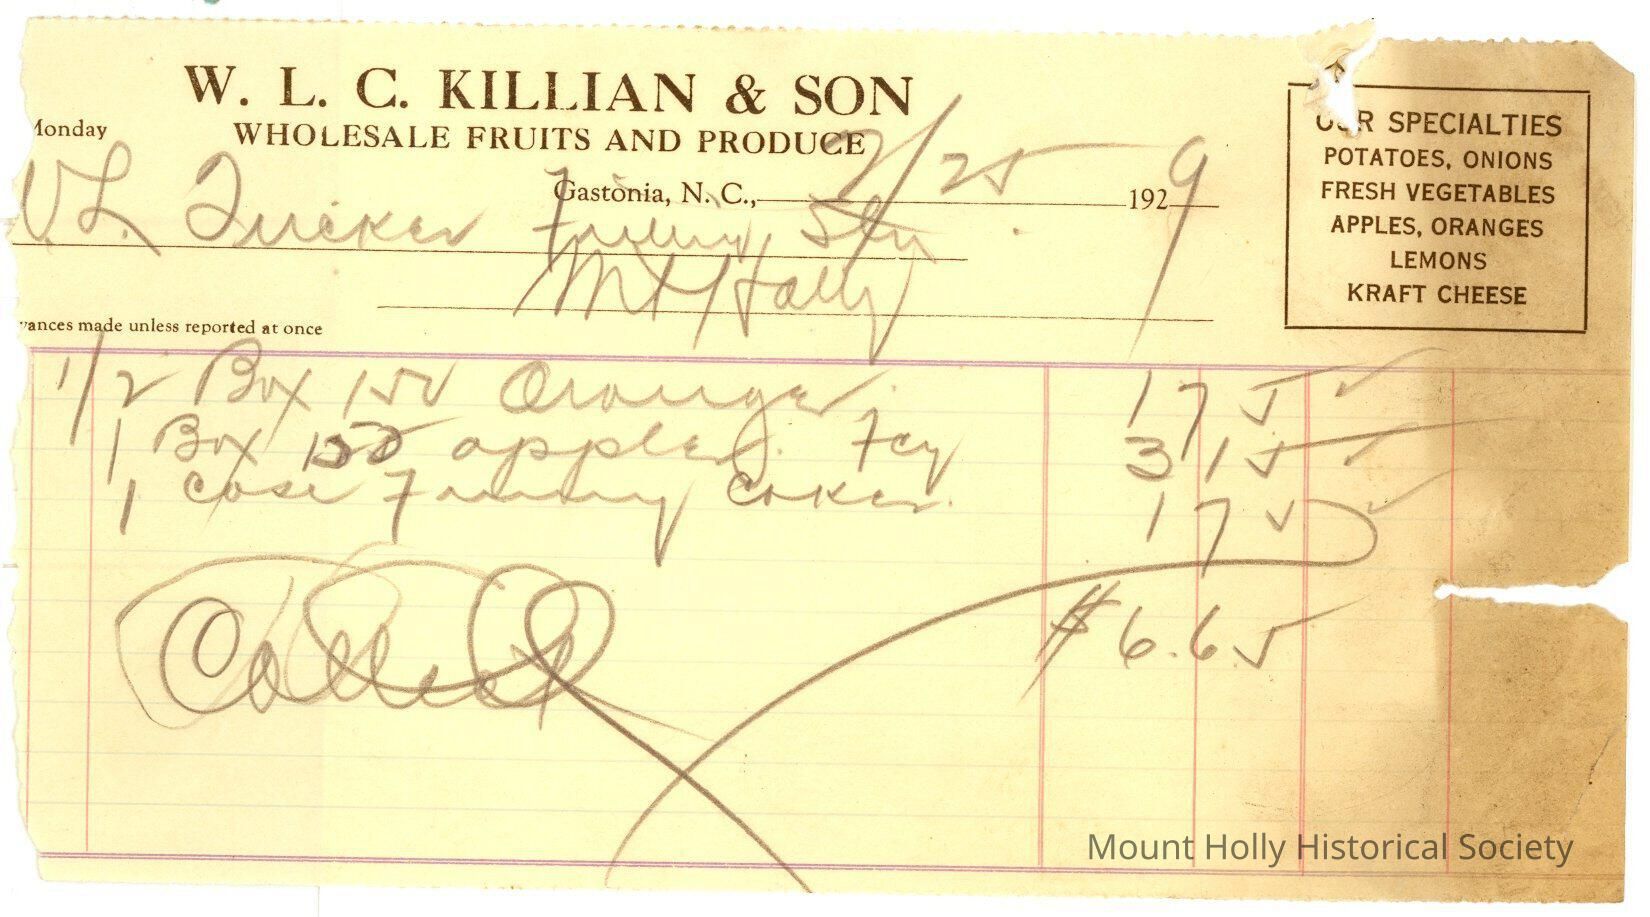 W. L. C. KILLIAN & SON
Monday
WHOLESALE FRUITS AND PRODUCE
Gastonia, N. C., 2/25 1929
V L. Tucker Filling Sta
Mt Holly
vances made unless reported at once
OUR SPECIALTIES
POTATOES, ONIONS
FRESH VEGETABLES
APPLES, ORANGES
LEMONS
KRAFT CHEESE
1/2 Box 150 Oranges 1 75
1 Box 150 apples Fcy 3 15
1 Case Fanny Cakes 1 75
$6.65
Collect
Mount Holly Historical Society